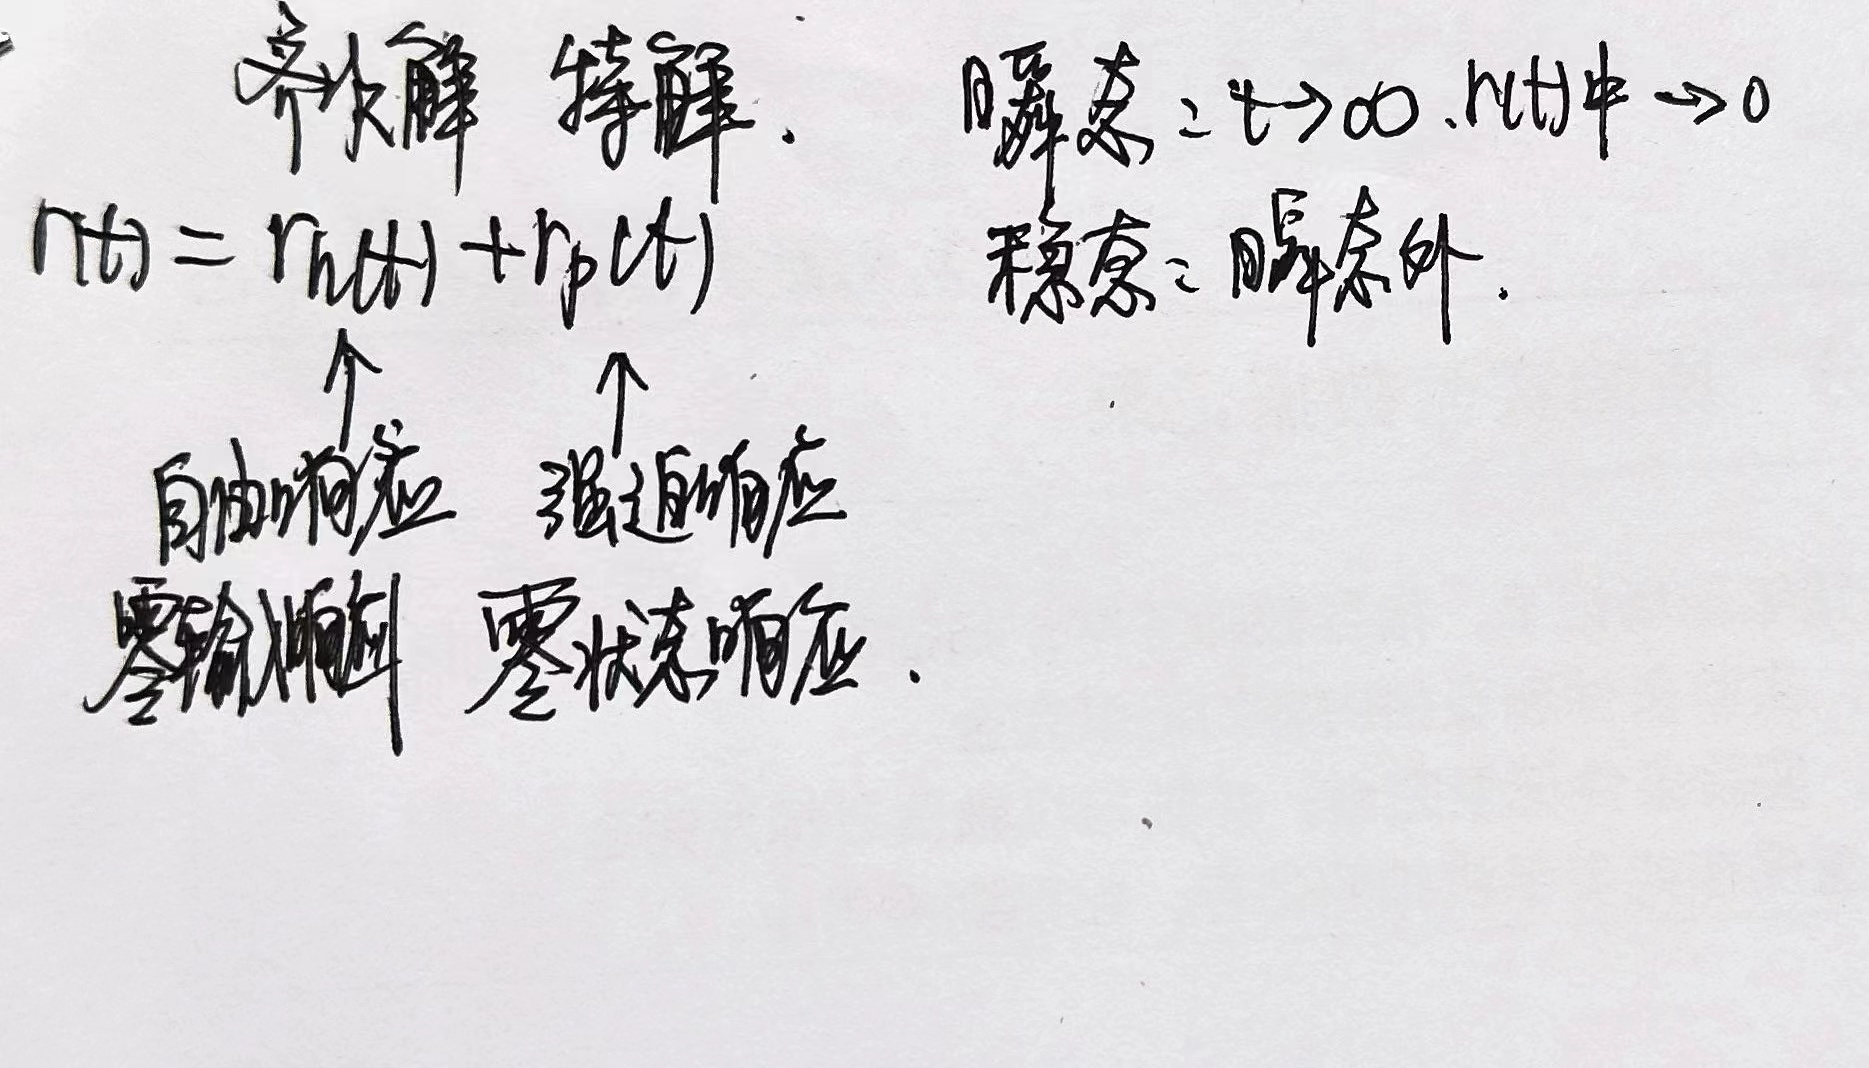 齐次解 特解.
r(t) = rh(t) + rp(t)
↑ ↑
自由响应 强迫响应
零输入响应 零状态响应.
瞬态: t→∞. r(t)中 →0
稳态: 瞬态外.